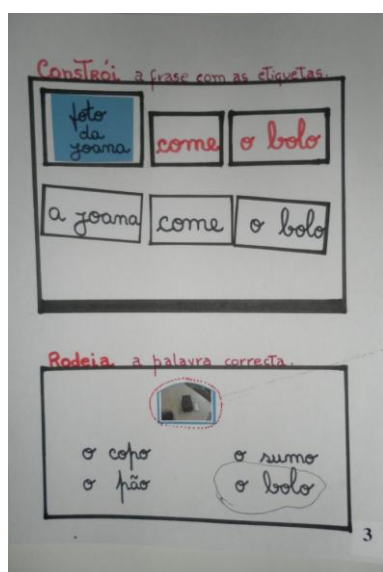 Constrói a frase com as etiquetas.
foto
da
joana
come
o bolo
a joana
come
o bolo
Rodeia a palavra correcta.
o copo
o sumo
o pão
o bolo
3